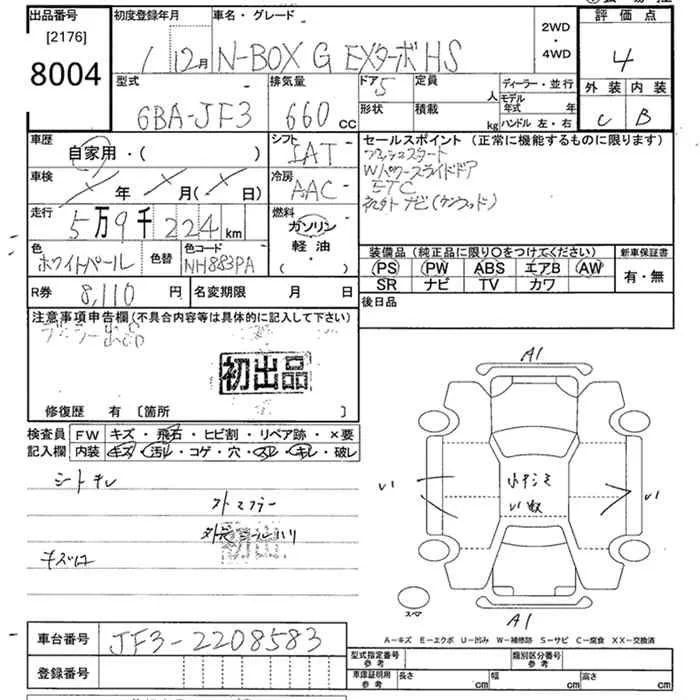 出品番号 [2176] 8004
初度登録年月 1 12月
車名・グレード N-BOX G EXターボHS
2WD ・ 4WD
評価点 4
外装 C 内装 B
型式 6BA-JF3
排気量 660 cc
ドア 5 形状
定員 人 積載 kg
ディーラー・並行
モデル年式 年
ハンドル 左・右
車歴 自家用・( )
シフト IAT
車検 年 月( 日)
冷房 AAC
走行 5万9千224km
燃料 ガソリン 軽油 ・( )
色 ホワイトパール 色替 色コード NH883PA
R券 8,110 円 名変期限 月 日
セールスポイント (正常に機能するものに限ります)
プッシュスタート
Wパワースライドドア
ETC
社外ナビ(ケンウッド)
装備品(純正品に限り〇をつけてください) 新車保証書
PS PW ABS エアB AW 有・無
SR ナビ TV カワ
後日品
注意事項申告欄(不具合内容等は具体的に記入して下さい)
ディーラー出品
初出品
修復歴 有 [箇所 ]
検査員 FW キズ・飛石・ヒビ割・リペア跡・×要
記入欄 内装 キズ・汚れ・コゲ・穴・スレ・キレ・破レ
シートキレ
キズ
初出品
A1
U1
U1
A1
スペア
A−キズ E−エクボ U−凹み W−補修跡 S−サビ C−腐食 XX−交換済
車台番号 JF3-2208583
登録番号
型式指定番号 参考 類別区分番号 参考
車庫証明用 参考 長さ cm 幅 cm 高さ cm